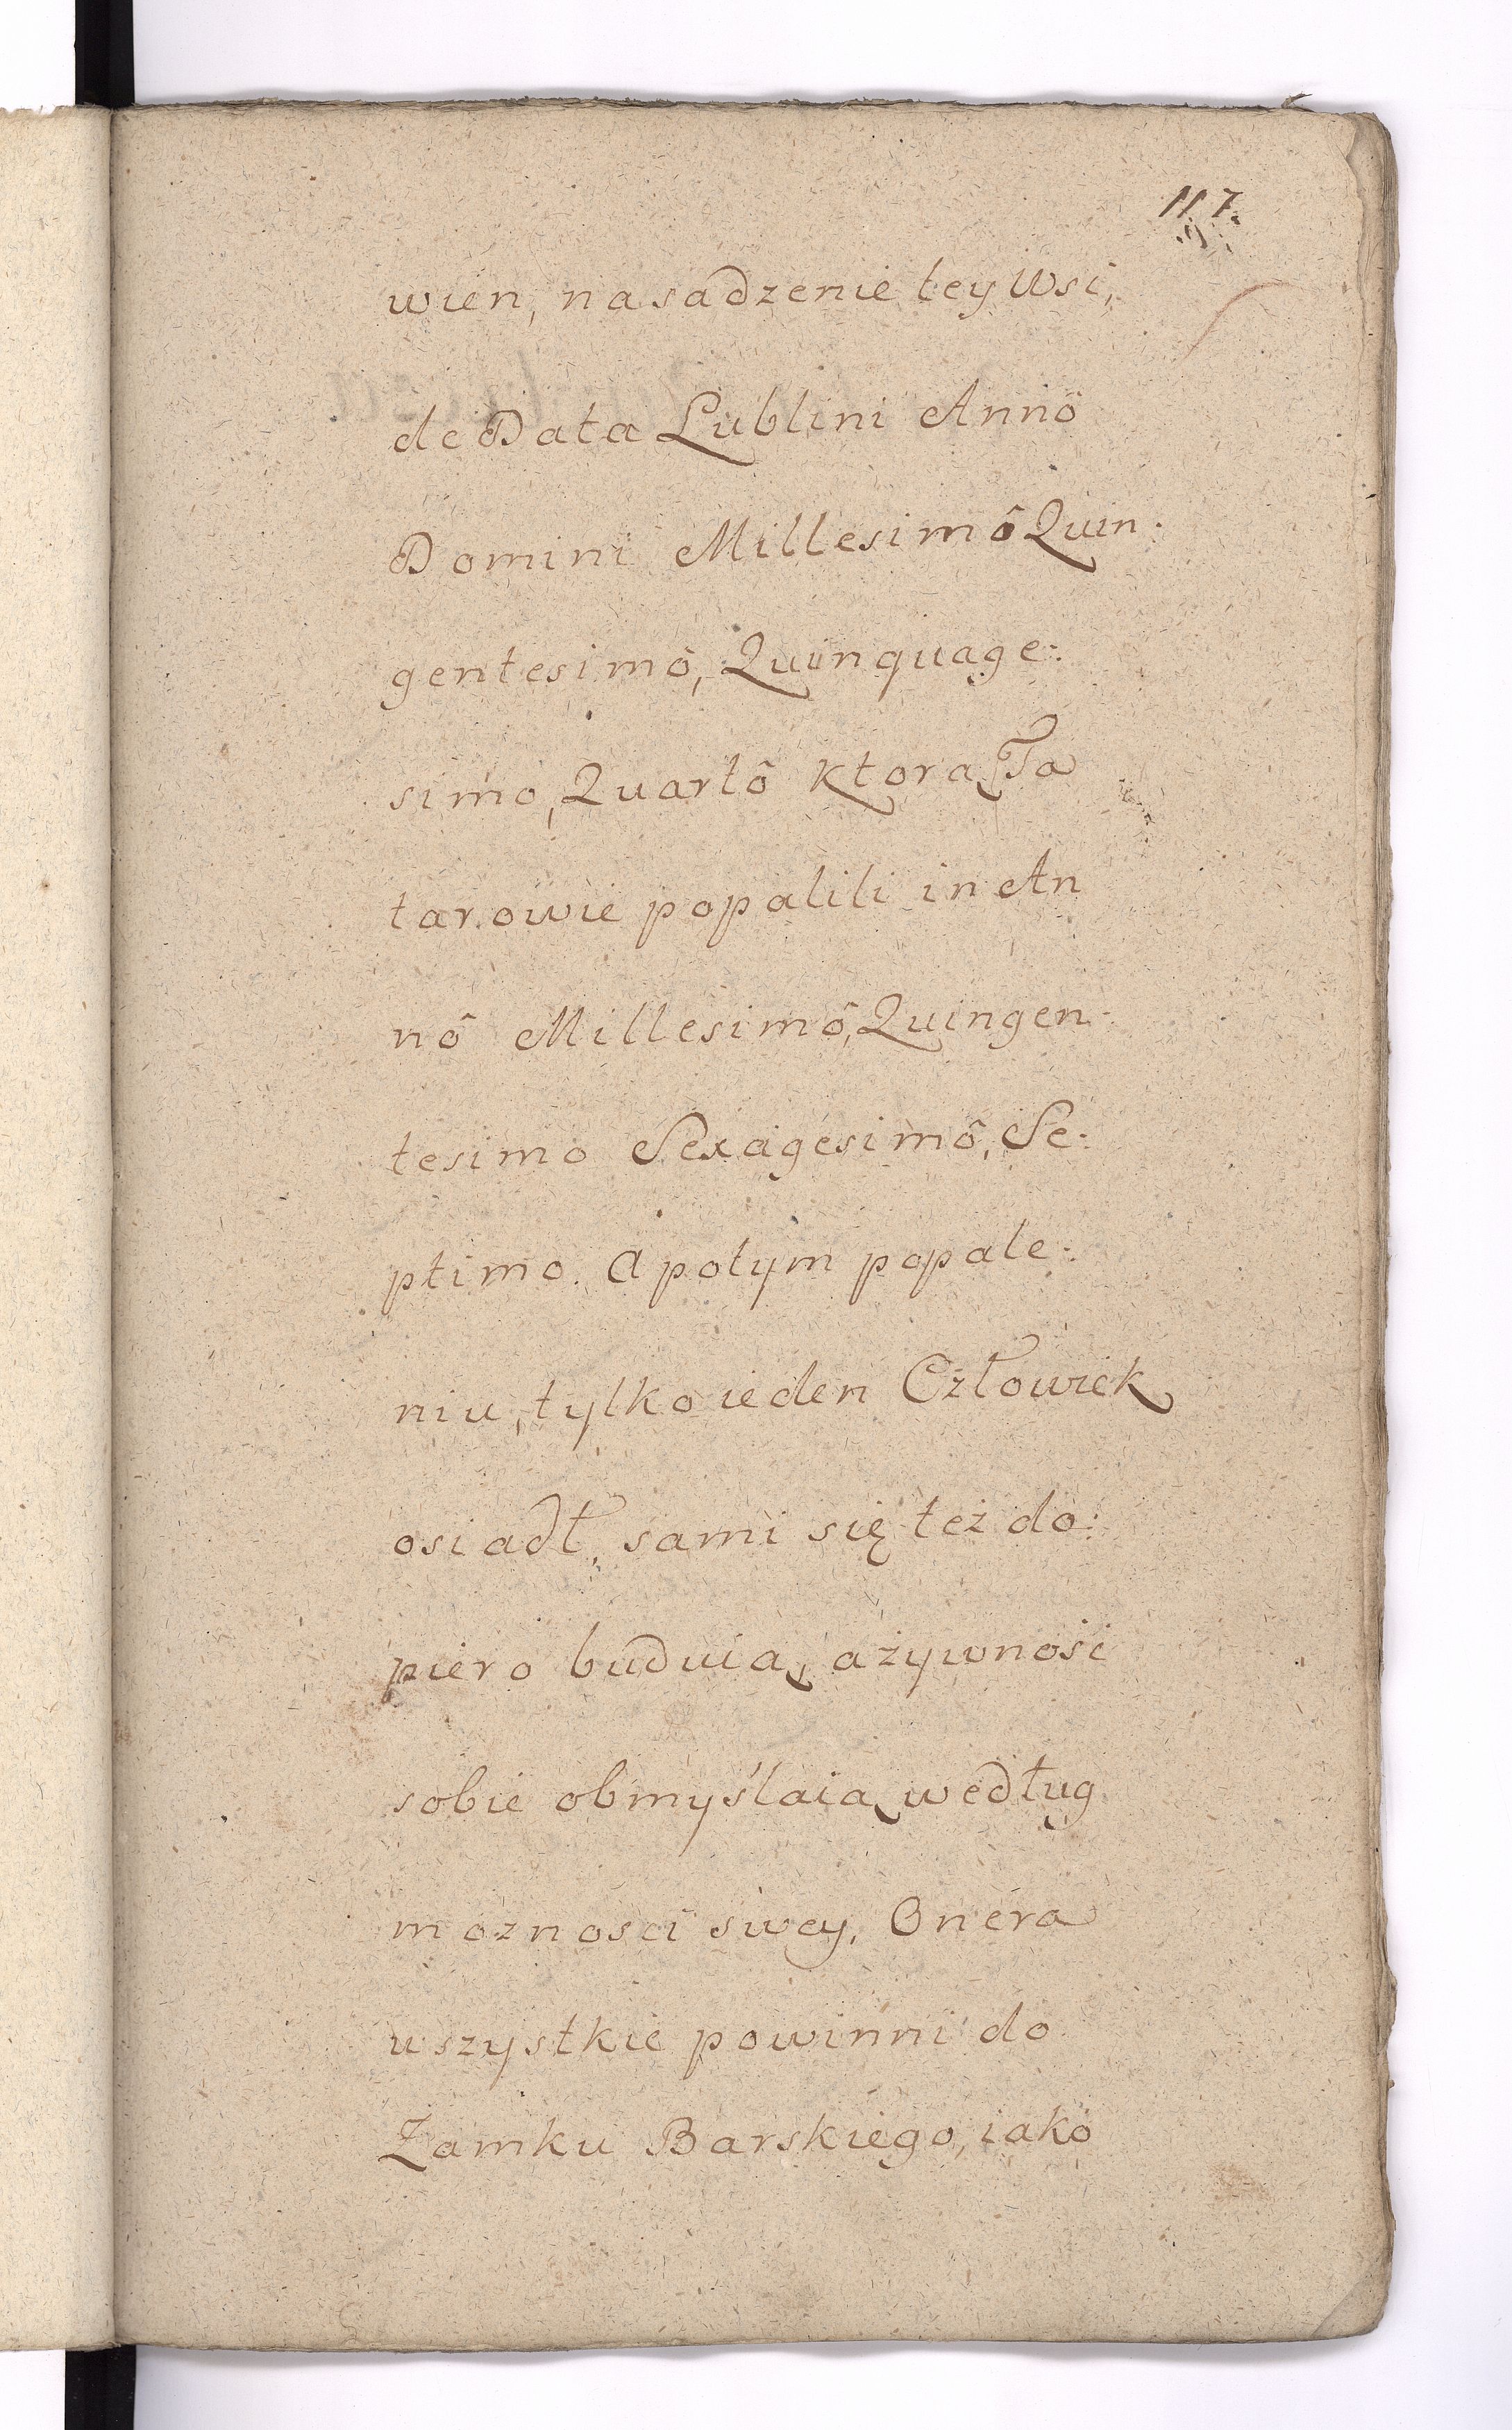 117.
wien, nasadzenie tey Wsi,
de Data Lublini Annô
Domini Millesimô Quin:
gentesimô, Quinquage:
simo, Quartô ktorą Ta
tarowie popalili in An
nô Millesimô, Quingen:
tesimo Sexagesimô, Se:
ptimo. A potym popale:
niu, tylko ieden Człowiek
osiadł, sami się też do:
piero buduią, a żywnosi
sobie obmyślaią według
moznosci swey, Onera
wszystkie powinni do
Zamku Barskiego, iako